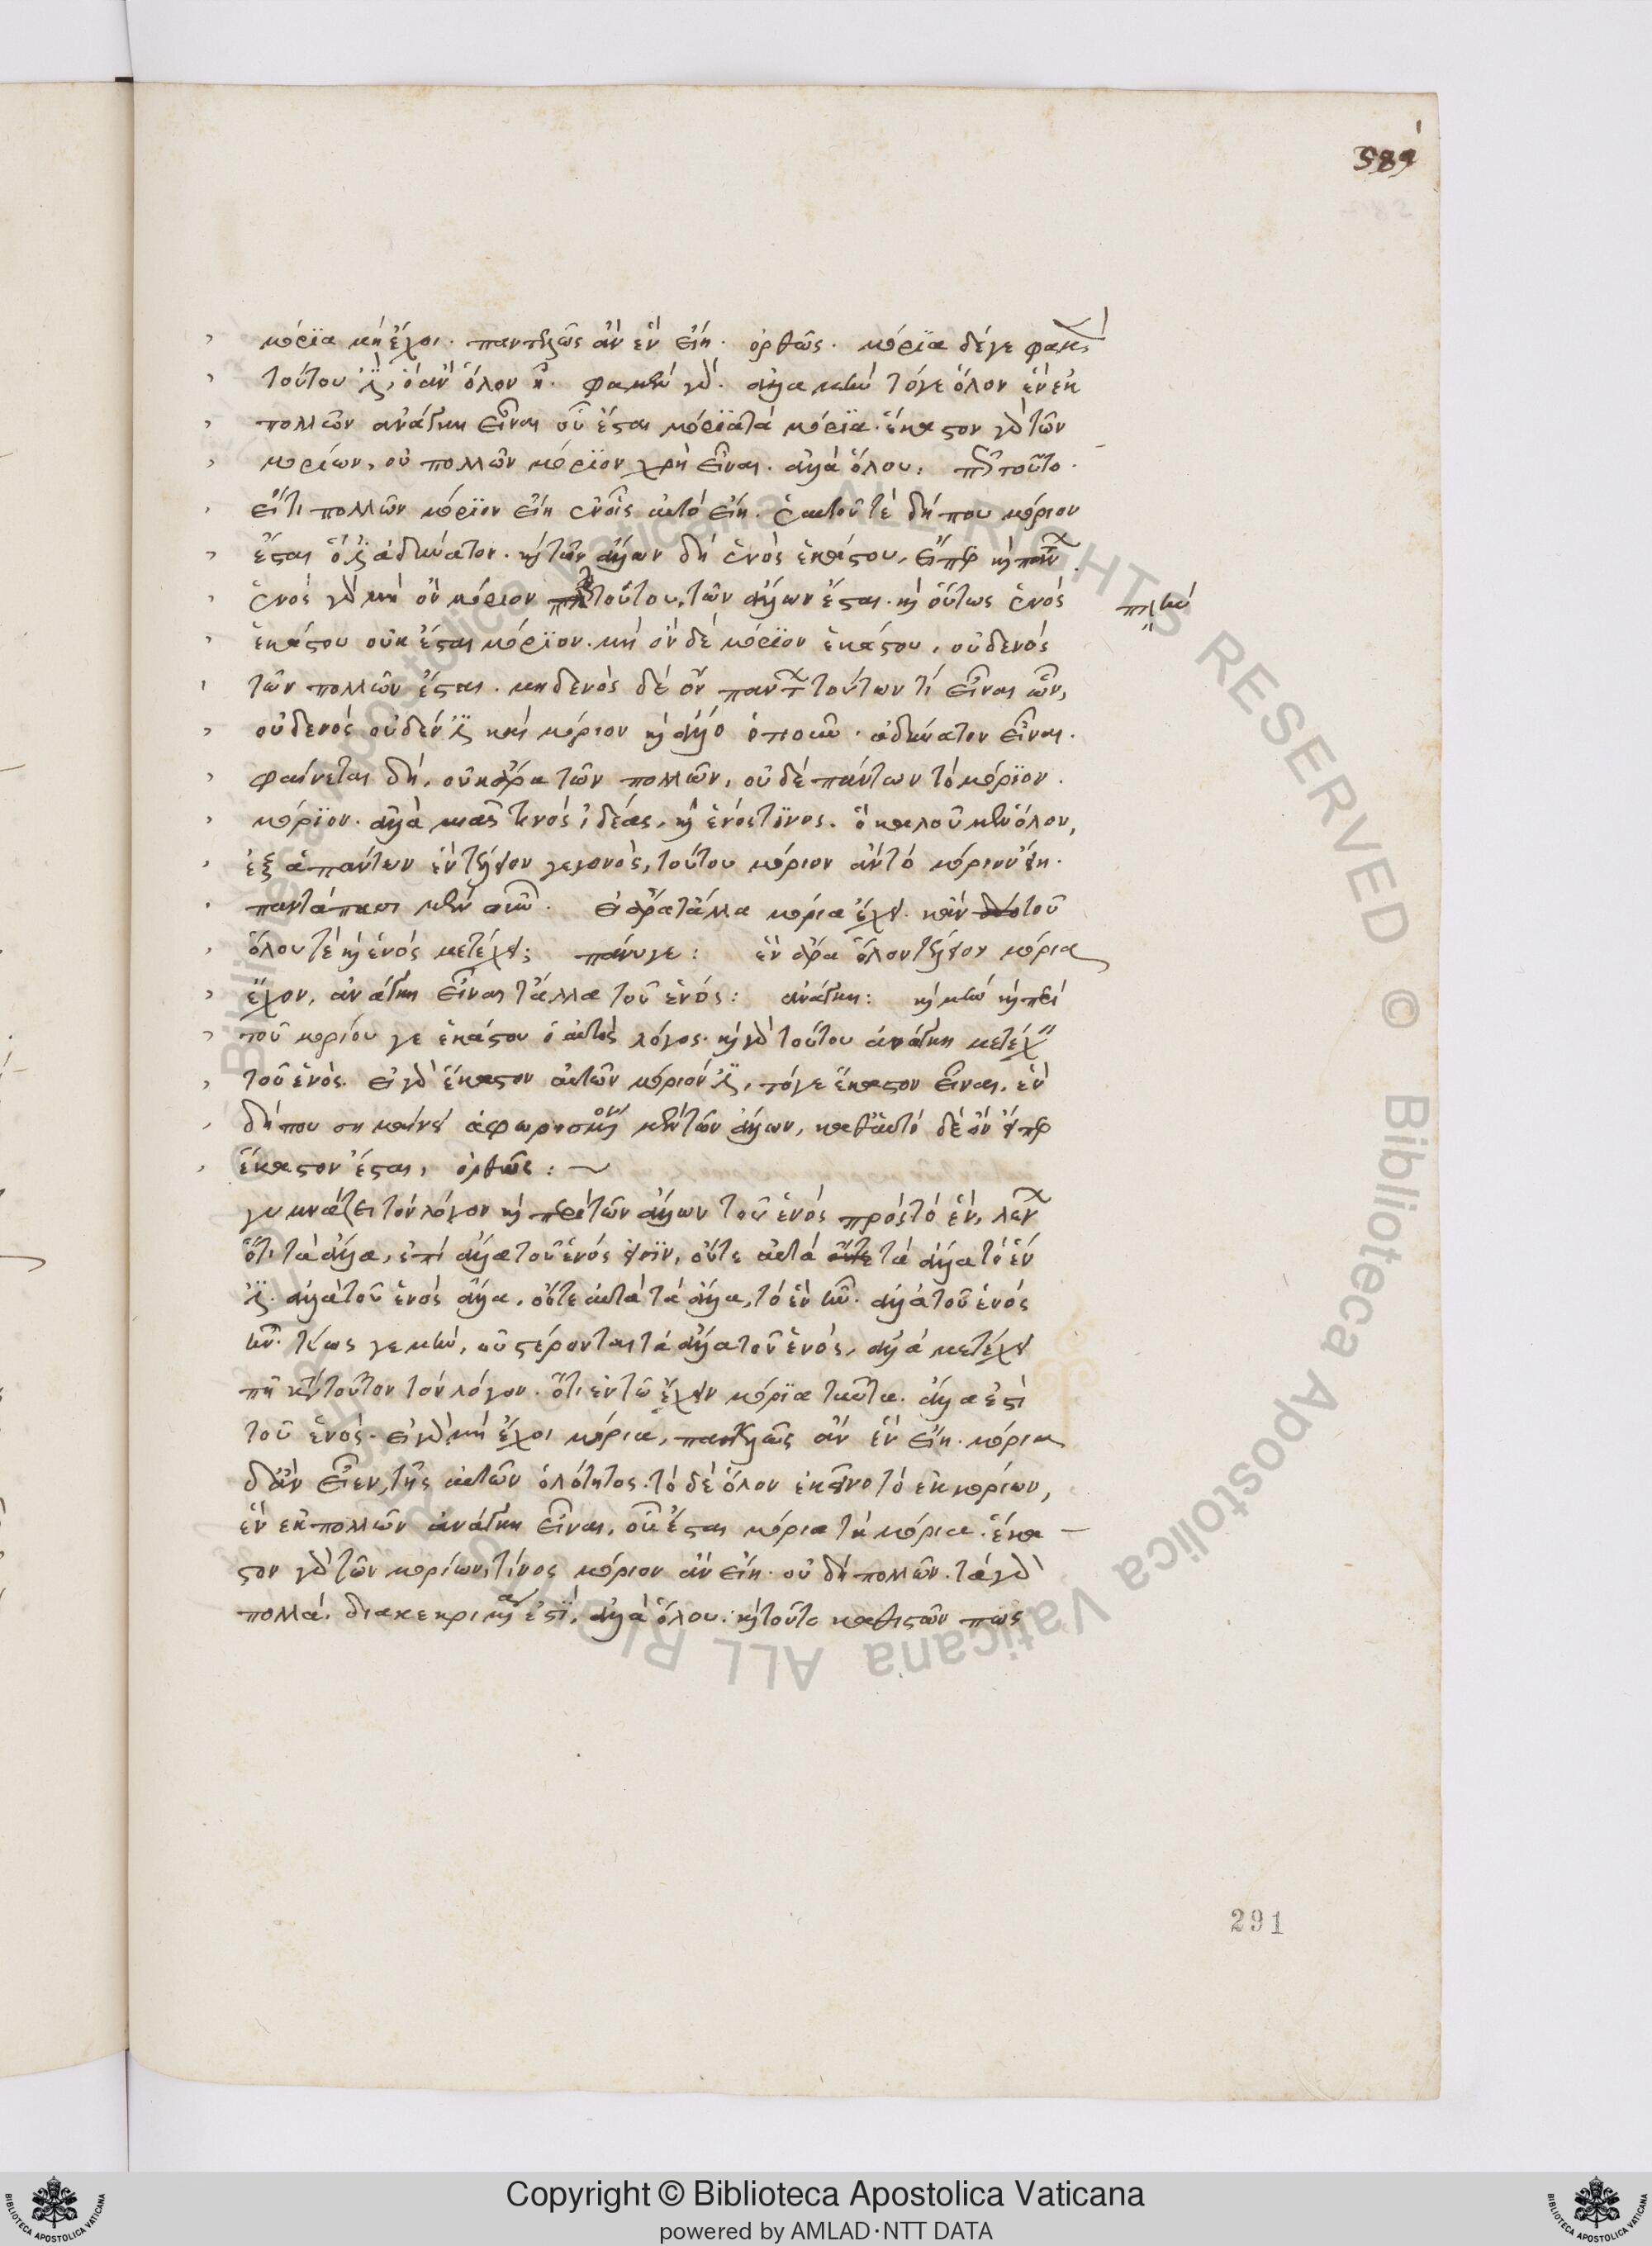 589
μόρϊα μὴ ἔχοι. παντελῶς ἂν ἓν εἴη. ὀρθῶς. μόρϊα δέ γε φαμὲν
τούτου ἐστὶν, ὃ ἂν ὅλον ᾖ. φαμὲν γὰρ. ἀλλὰ μὴν τό γε ὅλον ἓν ἐκ
πολλῶν ἀνάγκη εἶναι οὗ ἔσται μόρϊα τὰ μόρϊα. ἕκαστον γὰρ τῶν
μορίων, οὐ πολλῶν μόρϊον χρὴ εἶναι. ἀλλὰ ὅλου: πῶς τοῦτο.
εἴ τι πολλῶν μόρϊον εἴη ἐν οἷς αὐτὸ εἴη. ἑαυτοῦ τε δή που μόριον
ἔσται ὅ ἐστιν ἀδύνατον. καὶ τῶν ἄλλων δὴ ἑνὸς ἑκάστου, εἴπερ καὶ πάντων.
ἑνὸς γὰρ μὴ ὂν μόριον τούτου, τῶν ἄλλων ἔσται. καὶ οὕτως ἑνὸς
πλὴν
ἑκάστου οὐκ ἔσται μόρϊον. μὴ ὂν δὲ μόρϊον ἑκάστου, οὐδενὸς
τῶν πολλῶν ἔσται. μηδενὸς δὲ ὂν πάντων τούτων τὶ εἶναι ὧν,
οὐδενὸς οὐδέν ἐστι καὶ μόριον καὶ ἄλλο ὁποιοῦν. ἀδύνατον εἶναι.
φαίνεται δή. οὐκ ἄρα τῶν πολλῶν, οὐδὲ πάντων τὸ μόρϊον.
μόρϊον. ἀλλὰ μιᾶς τινὸς ἰδέας, καὶ ἑνός τϊνος. ὃ καλοῦμεν ὅλον,
ἐξ ἁπάντων ἓν τέλειον γεγονὸς, τούτου μόριον ἂν τὸ μόριον εἴη.
παντάπασι μὲν οὖν. εἰ ἄρα τἄλλα μόρια ἔχει. κἂν τοῦ
ὅλου τὲ καὶ ἑνὸς μετέχει; πάνυ γε: ἓν ἄρα ὅλον τέλειον μόρια
ἔχον, ἀνάγκη εἶναι τἄλλα τοῦ ἑνός: ἀνάγκη: καὶ μὴν καὶ περὶ
τοῦ μορίου γε ἑκάστου ὁ αὐτὸς λόγος. καὶ γὰρ τούτου ἀνάγκη μετέχειν
τοῦ ἑνός. εἰ γὰρ ἕκαστον αὐτῶν μόριόν ἐστι, τό γε ἕκαστον εἶναι, ἓν
δή που σημαίνει ἀφωρισμένον μὲν τῶν ἄλλων, καθ' αὑτὸ δὲ ὂν εἴπερ
ἕκαστον ἔσται, ὀρθῶς: ~
γυμνάζει τὸν λόγον καὶ περὶ τῶν ἄλλων τοῦ ἑνὸς πρὸς τὸ ἓν, λέγων
ὅτι τὰ ἄλλα, ἐπεὶ ἄλλα τοῦ ἑνός εἰσϊν, οὔτε αὐτὰ τὰ ἄλλα τὸ ἓν
ἐστι. ἀλλὰ τοῦ ἑνὸς ἄλλα, οὔτε αὐτὰ τὰ ἄλλα, τὸ ἓν ἦν. ἀλλὰ τοῦ ἑνὸς
ἦν. τέως γε μὴν, οὐ στέρονται τὰ ἄλλα τοῦ ἑνὸς, ἀλλὰ μετέχει
πῆ κατὰ τοῦτον τὸν λόγον. ὅτι ἐν τῷ ἔχειν μόρϊα ταῦτα. ἄλλα ἐστὶ
τοῦ ἑνός. εἰ γὰρ μὴ ἔχοι μόρια, παντελῶς ἂν ἓν εἴη. μόρια
δ' ἂν εἶεν, τῆς αὐτῶν ὁλότητος. τὸ δὲ ὅλον ἐκεῖνο τὸ ἐκ μορίων,
ἓν ἐκ πολλῶν ἀνάγκη εἶναι, οὗ ἔσται μόρια τὰ μόρια. ἕκα
στον γὰρ τῶν μορίων, τίνος μόριον ἂν εἴη. οὐ δὴ πολλῶν. τὰ γὰρ
πολλὰ. διακεκριμένα ἐστϊ, ἀλλὰ ὅλου. καὶ τοῦτο καθιστῶν πως
291